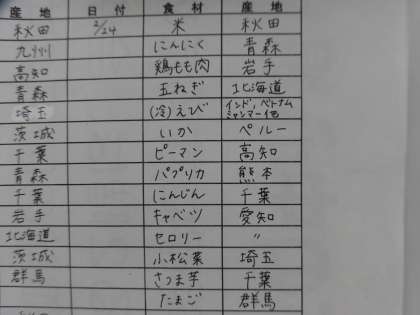 産地 日付 食材 産地
秋田 2/24 米 秋田
九州 にんにく 青森
高知 鶏もも肉 岩手
青森 玉ねぎ 北海道
埼玉 (冷)えび インド,ベトナム ミャンマー他
茨城 いか ペルー
千葉 ピーマン 高知
青森 パプリカ 熊本
千葉 にんじん 千葉
岩手 キャベツ 愛知
北海道 セロリー 〃
茨城 小松菜 埼玉
群馬 さつま芋 千葉
たまご 群馬